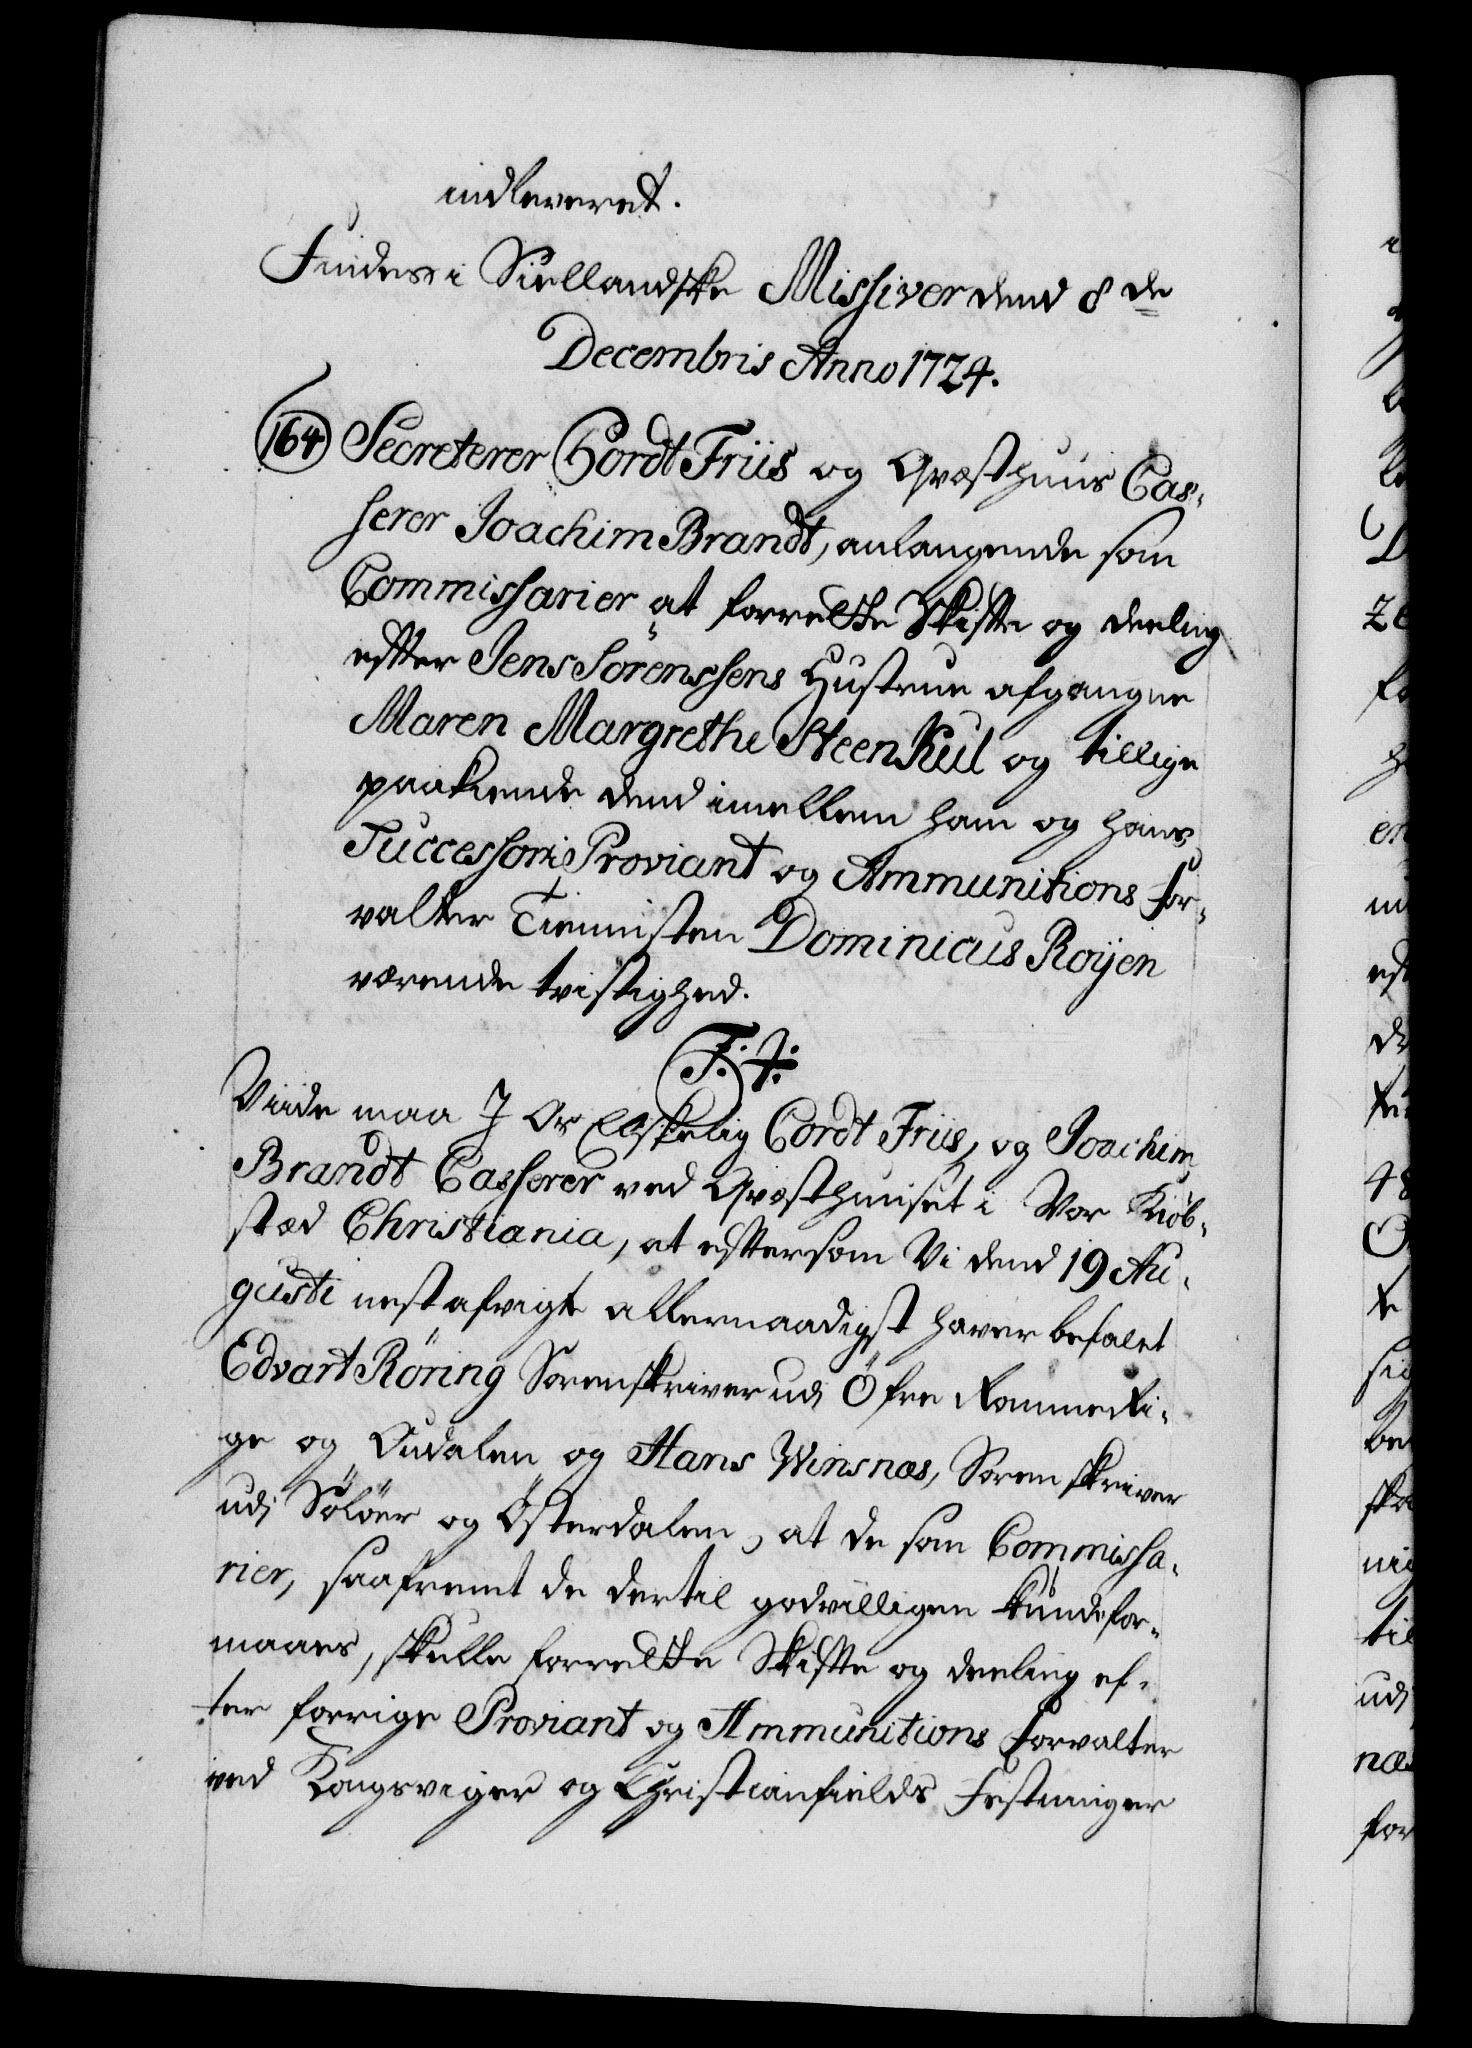 indleveret.
Findes i Siellandske Missiver dend 8de
Decembris Anno 1724.
164 Secreterer Cordt Friis og Qvæsthuus Cas-
serer Joachim Brandt, anlangende som
Commissarier at forrette Skifte og deeling
efter Jens Sörenssens Hustrue afgangne
Maren Margrethe SteenKul og tillige
paakiende dend imellem ham og hans
Successori Proviant og Ammunitions For-
valter Dominicus Royen
værende tvistighed.
F: 4:
Viide maa I Os Elskelig Cordt Friis, og Joachim
Brandt Casserer ved Qvæsthuuset i Vor Kiöb-
stæd Christiania, at eftersom Vi dend 19 Au-
gusti nestafvigt allernaadigst haver befalet
Edvart Röring Sorenskriver udi Öfre Romerri-
ge og Oudalen og Hans Winsnæs, Sorenskriver
udi Sölöer og Österdalen, at de som Commissa-
rier, saafremt de dertil godvilligen kunde for-
maaes, skulle forrette Skifte og deeling ef-
ter forrige Proviant og Ammunitions Forvalter
ved Kongsvinger og Christianfields Festninger